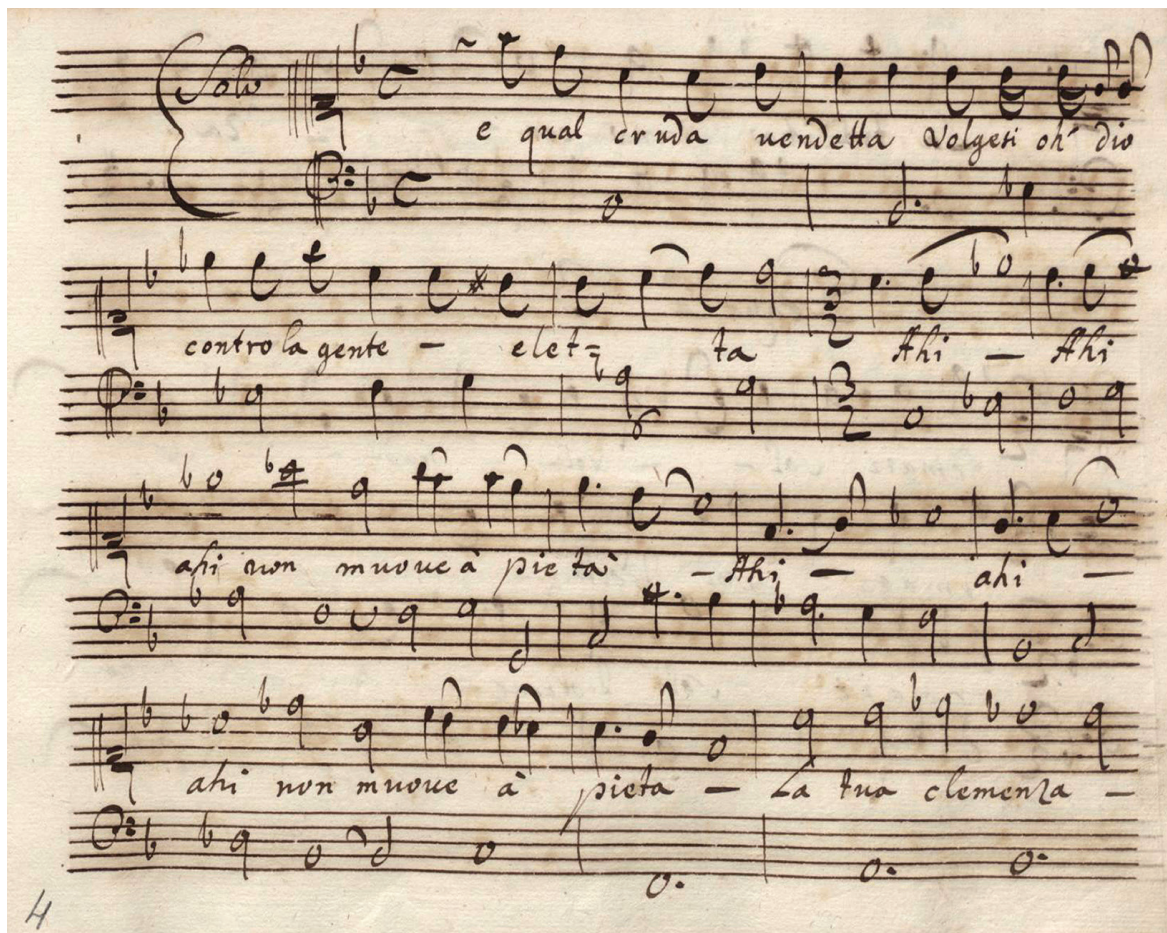 Solo
e qual cruda vendetta Volgesi oh' dio
contro la gente – elet= ta Ahi – Ahi
ahi non muove à pietà – Ahi – ahi –
ahi non muove à pieta – La tua clemenza –
4